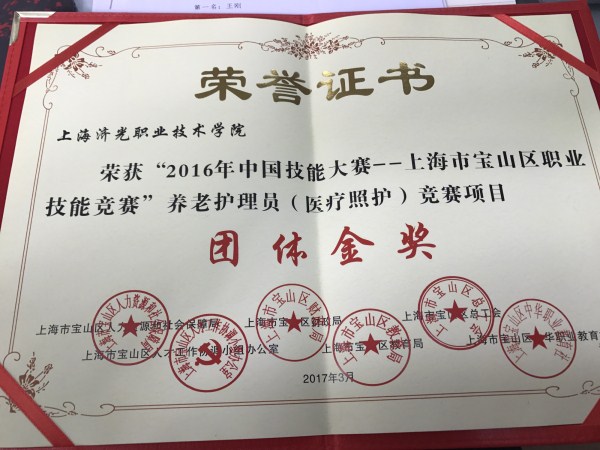 第一名：王刚
荣誉证书
上海济光职业技术学院
荣获“2016年中国技能大赛--上海市宝山区职业
技能竞赛”养老护理员（医疗照护）竞赛项目
团体金奖
上海市宝山区人力资源和社会保障局 上海市宝山区财政局 上海市宝山区总工会
上海市宝山区人才工作协调小组办公室 上海市宝山区教育局 上海市宝山区中华职业教育社
2017年3月